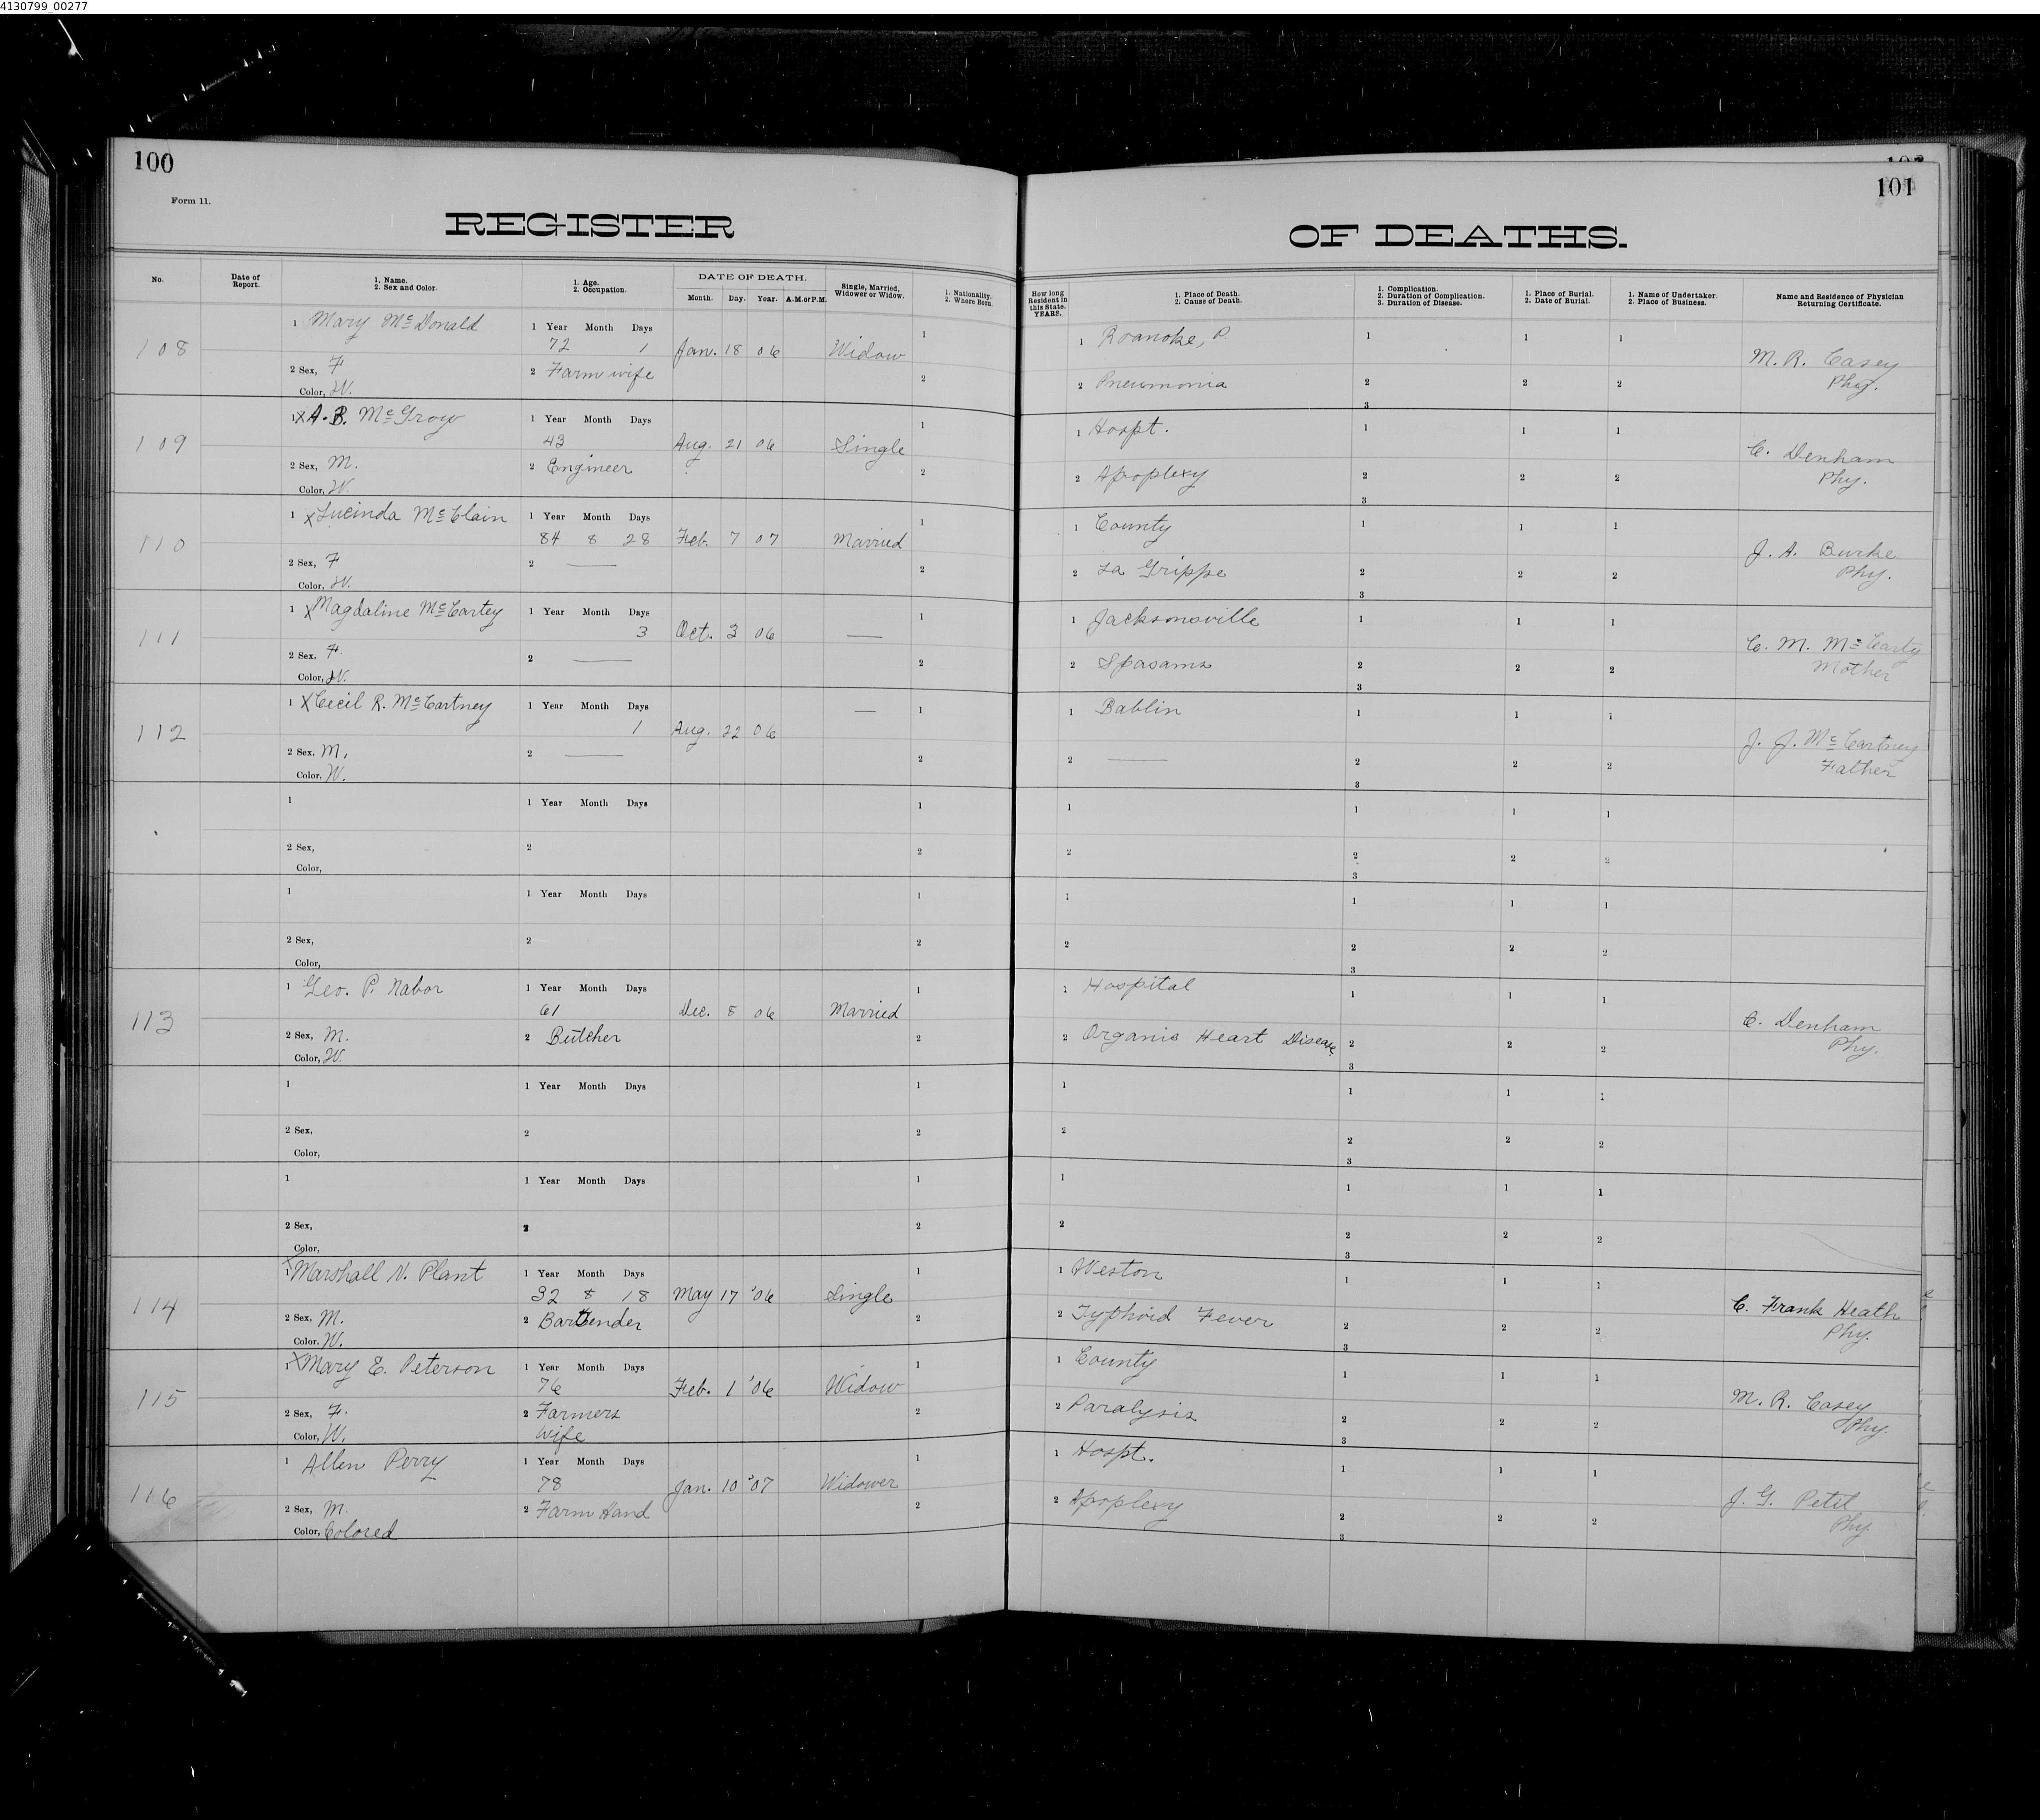 4130799_00277
100
101
Form 11.
REGISTER OF DEATHS.
No. Date of Report. 1. Name. 2. Sex and Color. 1. Age. 2. Occupation. DATE OF DEATH. Month. Day. Year. A.M. or P.M. Single, Married, Widower or Widow. 1. Nationality. 2. Where Born. How long Resident in this State. YEARS. 1. Place of Death. 2. Cause of Death. 1. Complication. 2. Duration of Complication. 3. Duration of Disease. 1. Place of Burial. 2. Date of Burial. 1. Name of Undertaker. 2. Place of Business. Name and Residence of Physician Returning Certificate.
1 Mary McDonald 1 Year Month Days 1 1 Roanoke, P. 1 1 1
108 72 1 Jan. 18 06 Widow M. R. Casey
2 Sex, F 2 Farm wife 2 2 Pneumonia 2 2 2 Phy.
Color, W. 3
1 X A. B. McGrow 1 Year Month Days 1 1 Hospt. 1 1 1
109 43 Aug. 21 06 Single C. Denham
2 Sex, M. 2 Engineer 2 2 Apoplexy 2 2 2 Phy.
Color, W 3
1 X Lucinda McClain 1 Year Month Days 1 1 County 1 1 1
110 84 8 28 Feb. 7 07 Married J. A. Burke
2 Sex, F 2 — 2 2 La Grippe 2 2 2 Phy.
Color, W. 3
1 X Magdaline McCartey 1 Year Month Days 1 1 Jacksonsville 1 1 1
111 3 Oct. 3 06 — C. M. McCarty
2 Sex, F. 2 — 2 2 Spasams 2 2 2 Mother
Color, W. 3
1 X Cecil R. McCartney 1 Year Month Days — 1 1 Bablin 1 1 1
112 1 Aug. 22 06 J. J. McCartney
2 Sex, M, 2 — 2 2 — 2 2 2 Father
Color, W. 3
1 1 Year Month Days 1 1 1 1 1
2 Sex, 2 2 2 2 2 2
Color, 3
1 1 Year Month Days 1 1 1 1 1
2 Sex, 2 2 2 2 2 2
Color, 3
1 Geo. P. Nabor 1 Year Month Days 1 1 Hospital 1 1 1
113 61 Dec. 8 06 Married C. Denham
2 Sex, M. 2 Butcher 2 2 Organic Heart Disease 2 2 2 Phy.
Color, W. 3
1 1 Year Month Days 1 1 1 1 1
2 Sex, 2 2 2 2 2 2
Color, 3
1 1 Year Month Days 1 1 1 1 1
2 Sex, 2 2 2 2 2 2
Color, 3
1 X Marshall N. Plant 1 Year Month Days 1 1 Weston 1 1 1
114 32 8 18 May 17 '06 Single C. Frank Heath
2 Sex, M. 2 Bartender 2 2 Typhoid Fever 2 2 2 Phy.
Color, W. 3
1 X Mary E. Peterson 1 Year Month Days 1 1 County 1 1 1
115 76 Feb. 1 '06 Widow M. R. Casey
2 Sex, F. 2 Farmers 2 2 Paralysis 2 2 2 Phy.
Color, W. wife 3
1 Allen Perry 1 Year Month Days 1 1 Hospt. 1 1 1
116 78 Jan. 10 '07 Widower J. G. Petit
2 Sex, M. 2 Farm Hand 2 2 Apoplexy 2 2 2 Phy.
Color, Colored 3